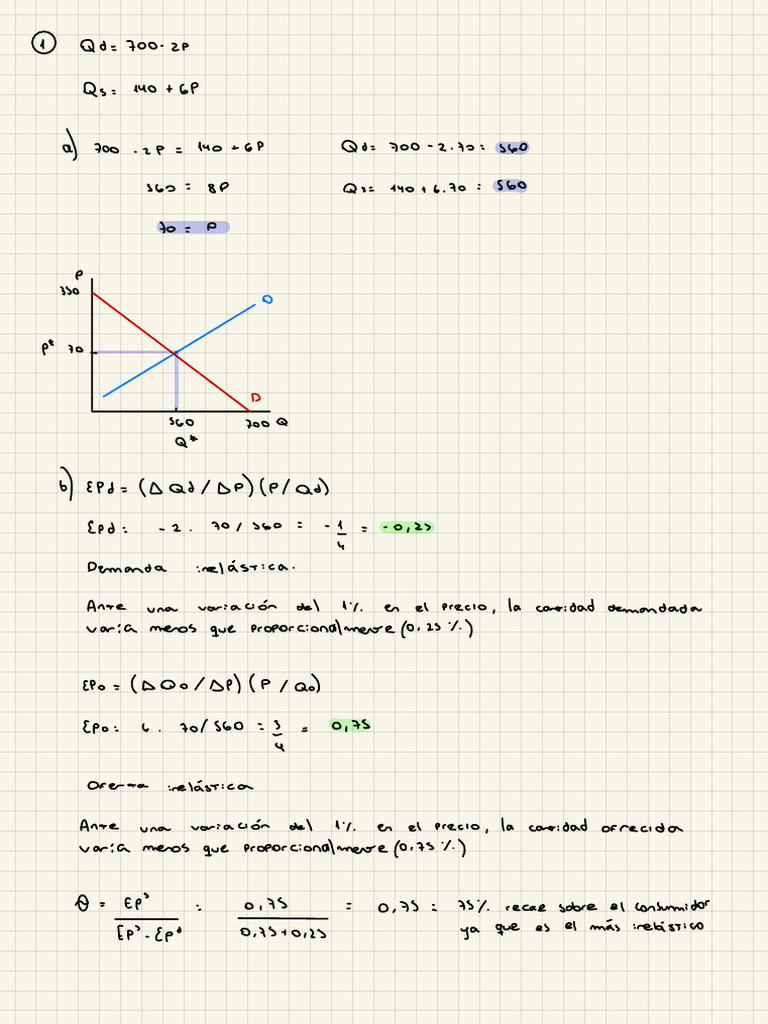 1 Qd = 700 - 2P
Qs = 140 + 6P
a) 700 - 2P = 140 + 6P
560 = 8P
70 = P
Qd = 700 - 2 . 70 = 560
Qs = 140 + 6 . 70 = 560
P
350
O
P* 70
D
560 700 Q
Q*
b) EPd = (ΔQd / ΔP) (P / Qd)
EPd = -2 . 70 / 560 = -1/4 = -0,25
Demanda inelástica.
Ante una variación del 1% en el precio, la cantidad demandada
varía menos que proporcionalmente (0,25 %)
EPo = (ΔQo / ΔP) (P / Qo)
EPo = 6 . 70 / 560 = 3/4 = 0,75
Oferta inelástica
Ante una variación del 1% en el precio, la cantidad ofrecida
varía menos que proporcionalmente (0,75 %)
θ = EPˢ / EPˢ - EPᵈ = 0,75 / 0,75 + 0,25 = 0,75 = 75% recae sobre el consumidor
ya que es el más inelástico